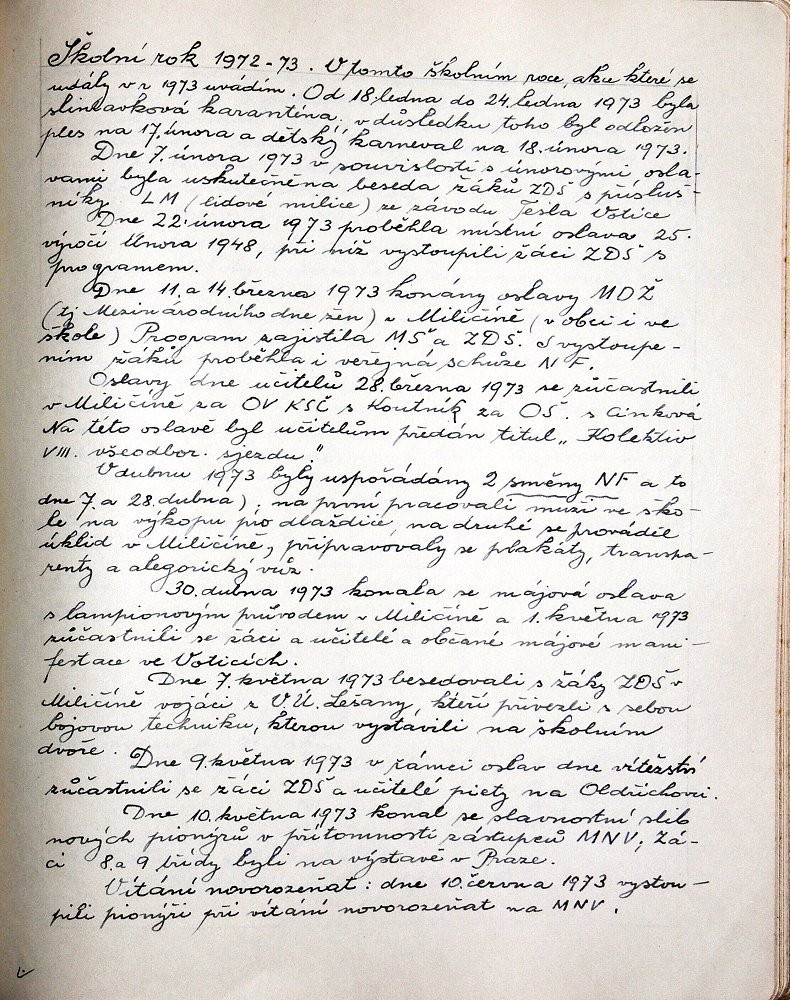 Školní rok 1972-73. V tomto školním roce, akce které se
udály v r 1973 uvádím. Od 18. ledna do 24. ledna 1973 byla
slintavková karanténa; v důsledku toho byl odložen
ples na 17. února a dětský karneval na 18. února 1973.
Dne 7. února 1973 v souvislosti s únorovými osla-
vami byla uskutečněna beseda žáků ZDŠ s přísluš-
níky LM (lidové milice) ze závodu Tesla Votice
Dne 22. února 1973 proběhla místní oslava 25.
výročí Února 1948, při níž vystoupili žáci ZDŠ s
programem.
Dne 11. a 14. března 1973 konány oslavy MDŽ
(tj Mezinárodního dne žen) v Miličíně (v obci i ve
škole) Program zajistila MŠ a ZDŠ. S vystoupe-
ním žáků proběhla i veřejná schůze NF.
Oslavy dne učitelů 28. března 1973 se zúčastnili
v Miličíně za OV KSČ s Koutník za OŠ. s Cinková
Na této oslavě byl učitelům předán titul „Kolektiv
VIII. všeodbor. sjezdu."
V dubnu 1973 byly uspořádány 2 směny NF a to
dne 7. a 28. dubna); na první pracovali muži ve ško-
le na výkopu pro dlaždice, na druhé se prováděl
úklid v Miličíně, připravovaly se plakáty, transpa-
renty a alegorický vůz.
30. dubna 1973 konala se májová oslava
s lampionovým průvodem v Miličíně a 1. května 1973
zúčastnili se žáci a učitelé a občané májové mani-
festace ve Voticích.
Dne 7. května 1973 besedovali s žáky ZDŠ v
Miličíně vojáci z V.Ú. Lešany, kteří přivezli s sebou
bojovou techniku, kterou vystavili na školním
dvoře.
Dne 9. května 1973 v rámci oslav dne vítězství
zúčastnili se žáci ZDŠ a učitelé piety na Oldřichovci.
Dne 10. května 1973 konal se slavnostní slib
nových pionýrů v přítomnosti zástupců MNV; Žá-
ci 8. a 9 třídy byli na výstavě v Praze.
Vítání novorozeňat: dne 10. června 1973 vystou-
pili pionýři při vítání novorozeňat na MNV.